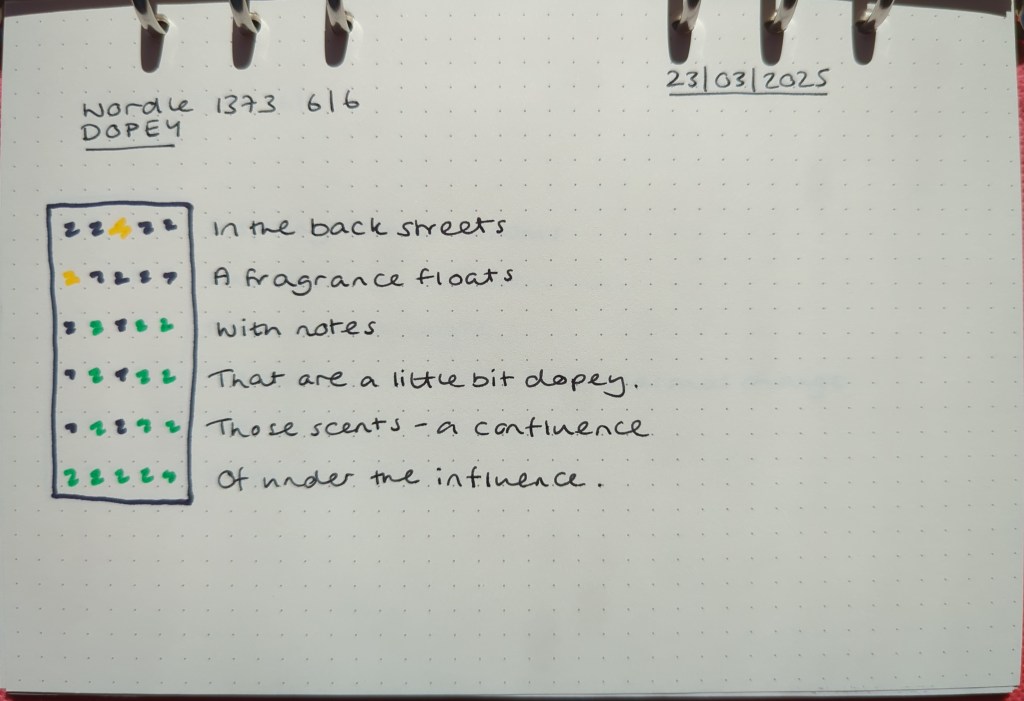 23/03/2025
Wordle 1373 6/6
DOPEY
In the back streets
A fragrance floats
With notes
That are a little bit dopey.
Those scents - a confluence
Of under the influence.